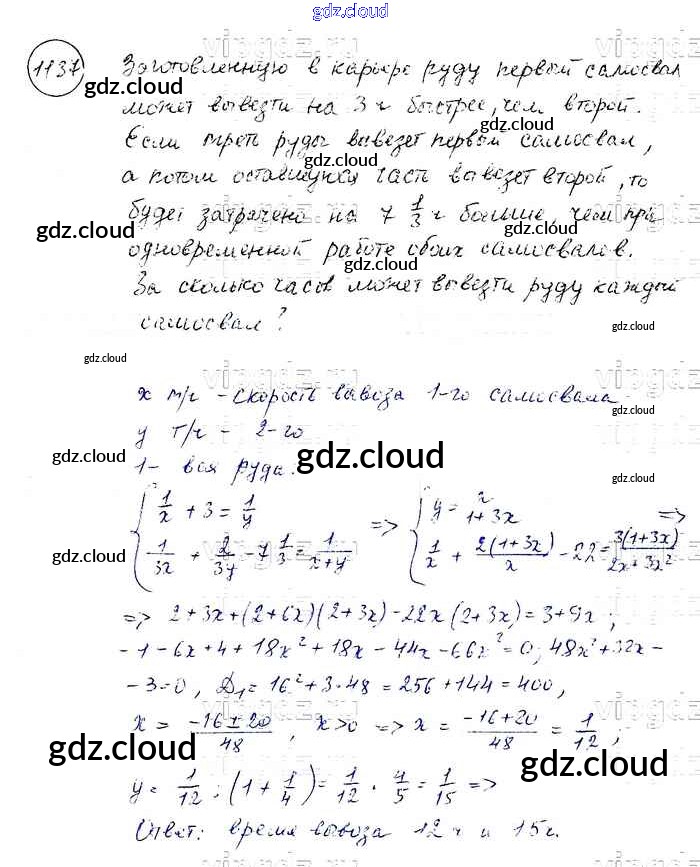 gdz.cloud
1137 Заготовленную в карьере руду первый самосвал
может вывезти на 3 ч быстрее, чем второй.
Если треть руды вывезет первый самосвал,
а потом оставшуюся часть вывезет второй, то
будет затрачено на 7 1/3 ч больше чем при
одновременной работе обоих самосвалов.
За сколько часов может вывезти руду каждый
самосвал?
x т/ч - скорость вывоза 1-го самосвала
y т/ч - 2-го
1 - вся руда.
{ 1/x + 3 = 1/y ; 1/3x + 2/3y - 7 1/3 = 1/(x+y) => { y = x/(1+3x) ; 1/x + 2(1+3x)/x - 22 = 3(1+3x)/(2x+3x²) =>
=> 2+3x+(2+6x)(2+3x)-22x(2+3x)=3+9x;
-1-6x+4+18x²+18x-44x-66x²=0; 48x²+32x-
-3=0, Д₁=16²+3·48=256+144=400,
x = (-16±20)/48, x>0 => x = (-16+20)/48 = 1/12;
y = 1/12 : (1 + 1/4) = 1/12 · 4/5 = 1/15 =>
Ответ: время вывоза 12 ч и 15 ч.